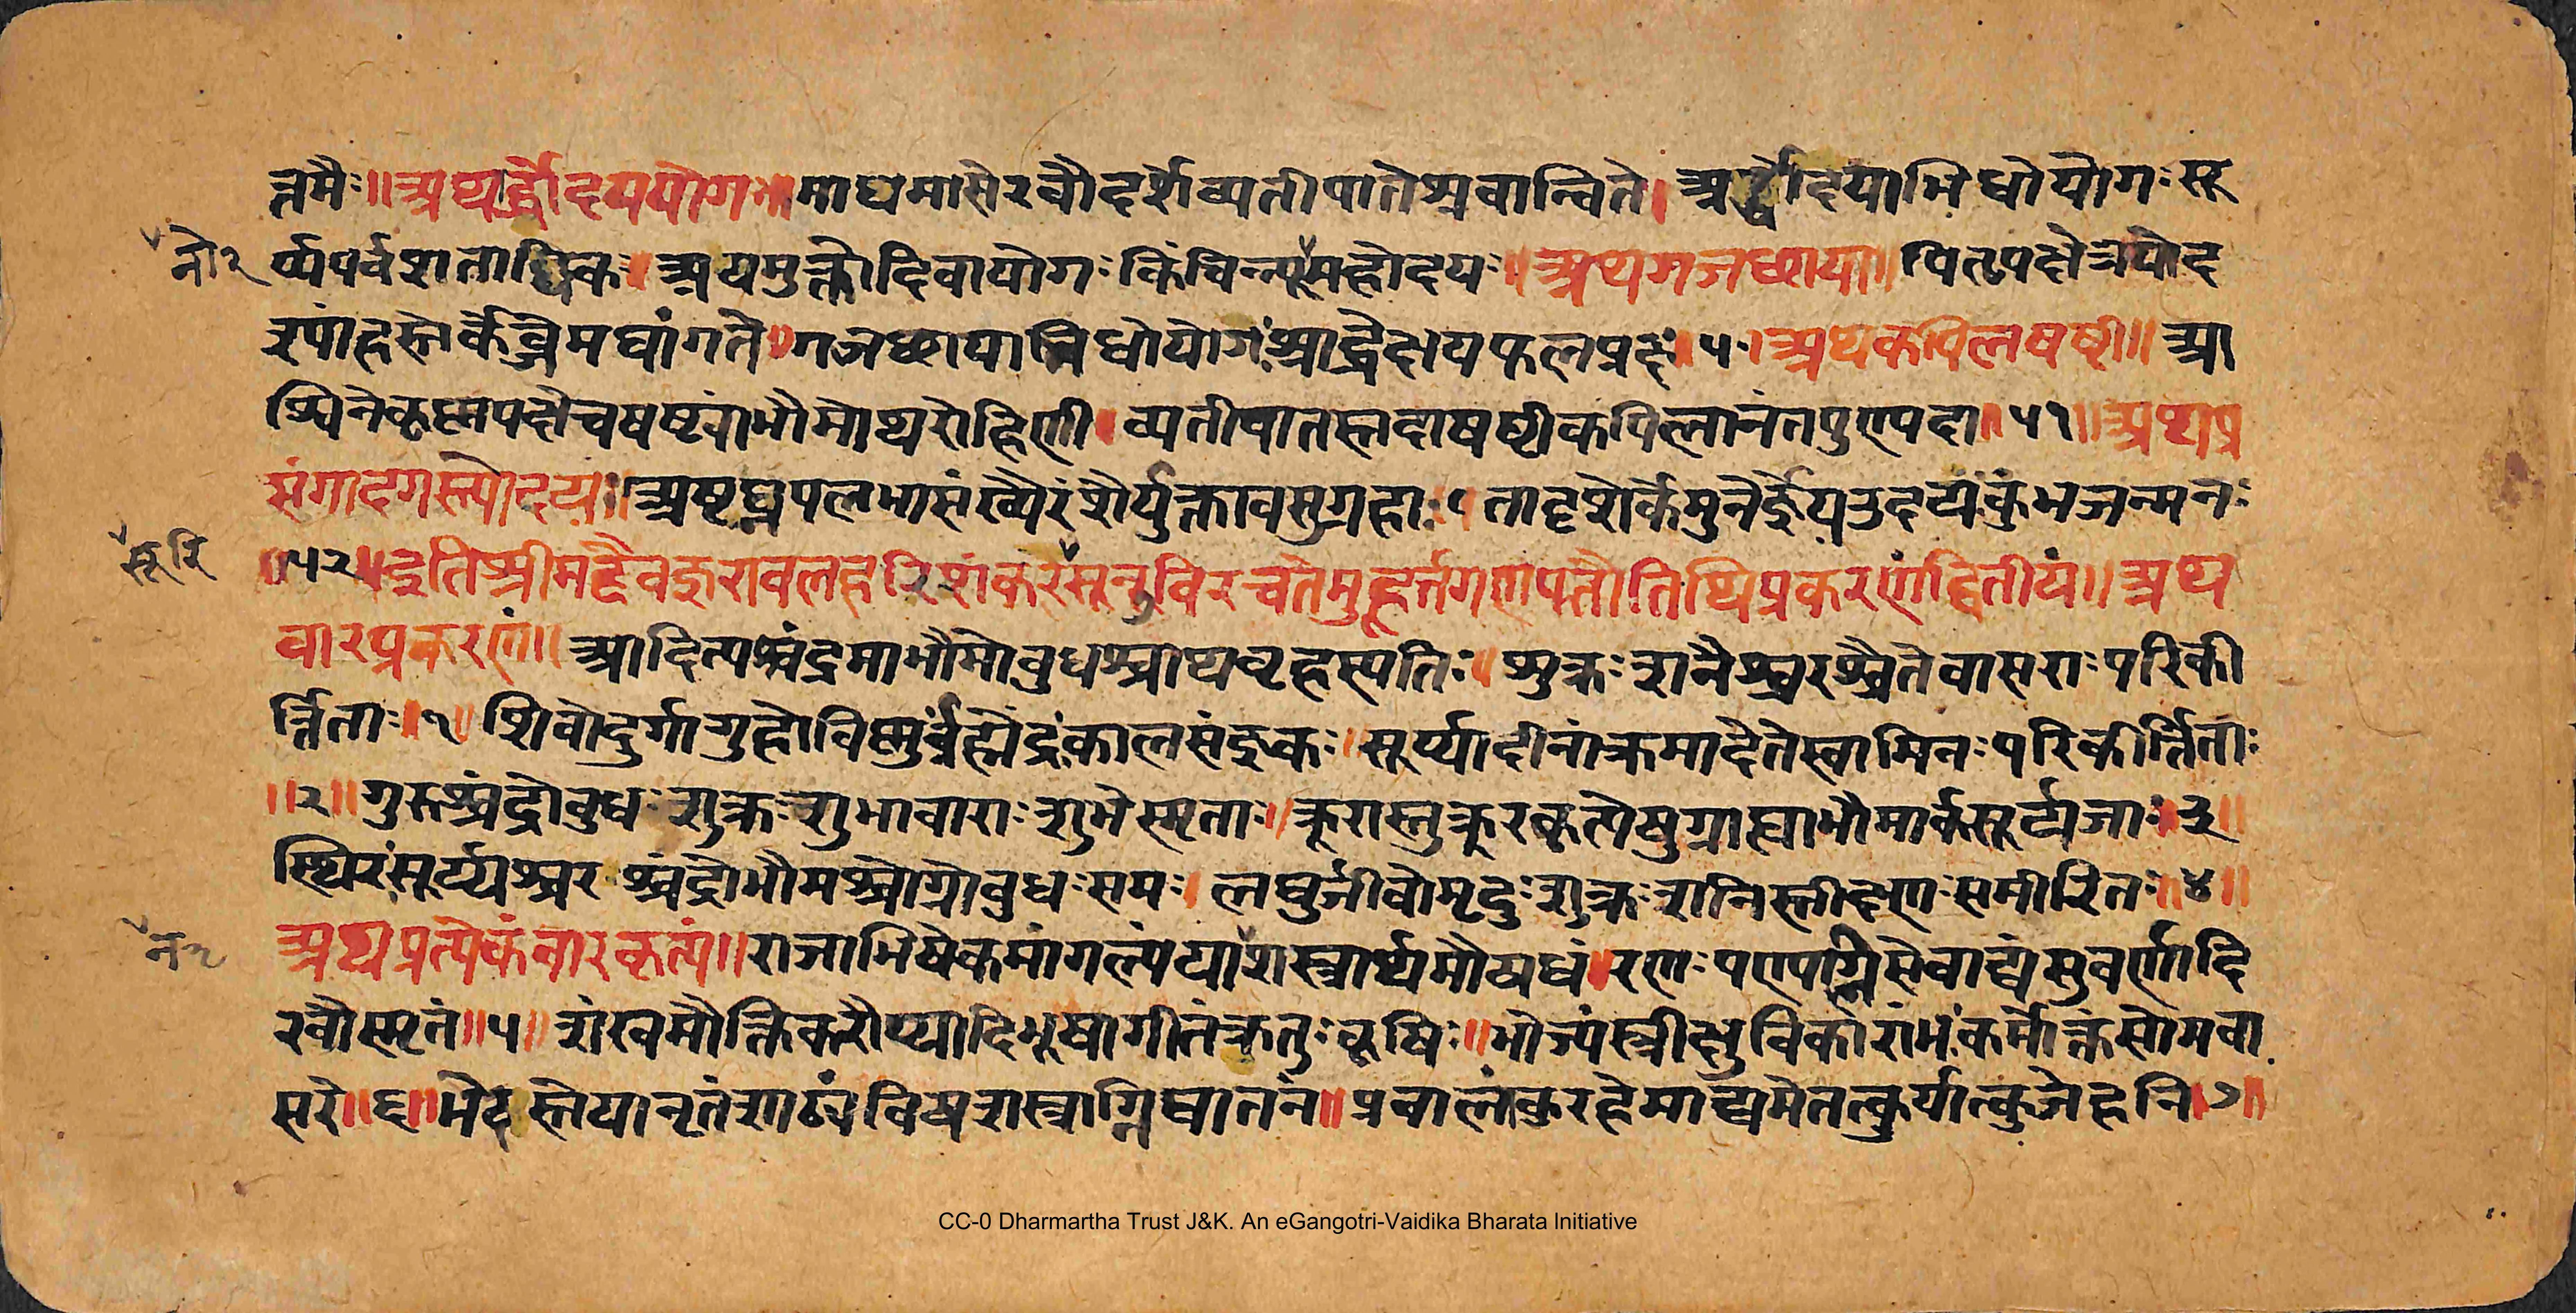 त्तमैः॥अथार्द्धोदययोगः॥माघमासेरवौदर्शेव्यतीपातेश्रवान्विते।अर्द्धोदयाभिधोयोगःसू
नो२ र्य्यपर्वशताधिकः॥अयमुक्तोदिवायोगःकिंचिन्न्यूमहोदयः॥अथगजछाया॥पितृपक्षेत्रयोद
श्यांहस्तेर्केब्जेमघांगते॥गजछायाभिधोयोगःश्राद्धेक्षयफलप्रदः॥५०।अथकपिलषष्ठी॥आ
श्विनेकृष्णपक्षेचषष्ठ्यांभौमोथरोहिणी।व्यतीपातस्तदाषष्ठीकपिलानंतपुण्यदा॥५१॥अथप्र
संगादगस्त्योदयः॥अष्टघ्नपलभासंख्यैरंशैर्युक्तावसुग्रहाः।तादृशेर्केमुनेर्ज्ञेयउदयःकुंभजन्मनः
सूरि ॥५२॥इतिश्रीमद्दैवज्ञरावलहरिशंकरसूनुविरचतेमुहूर्त्तगणपतौतिथिप्रकरणंद्वितीयं॥अथ
वारप्रकरणं॥आदित्यश्चंद्रमाभौमोबुधश्चाथबृहस्पतिः॥शुक्रःशनैश्चरश्चैतेवासराःपरिकी
र्त्तिताः॥१॥शिवोदुर्गागुहोविष्णुर्ब्रह्मेंद्रःकालसंज्ञकः॥सूर्य्यादीनांक्रमादेतेस्वामिनःपरिकीर्त्तिताः
॥२॥गुरुश्चंद्रोबुधःशुक्रःशुभावाराःशुभेस्मृताः॥क्रूरास्तुक्रूरकृत्येषुग्राह्याभौमार्कसूर्य्यजाः॥३॥
स्थिरःसूर्य्यश्चरश्चंद्रोभौमश्चोग्रोबुधःसमः।लघुर्जीवोमृदुःशुक्रःशनिस्तीक्ष्णःसमीरितः॥४॥
न२ अथप्रत्येकंवारकृत्यं॥राजाभिषेकमांगल्यंयाशस्त्रार्थमौषधं॥रणःपण्यग्निसेवाद्यंसुवर्णादि
रवौस्मृतं॥५॥शंखमौक्तिकरौप्यादिभूषागीतंक्रतुःकृषिः॥भोज्यंस्त्रीक्षुविकारांभःकर्मोक्तंसोमवा
सरे॥६॥भेदस्तेयानृतंशाठ्यंविषशस्त्राग्निघातनं॥प्रवालांकुरहेमाद्यमेतत्कुर्यात्कुजेहनि।७॥
CC-0 Dharmartha Trust J&K. An eGangotri-Vaidika Bharata Initiative